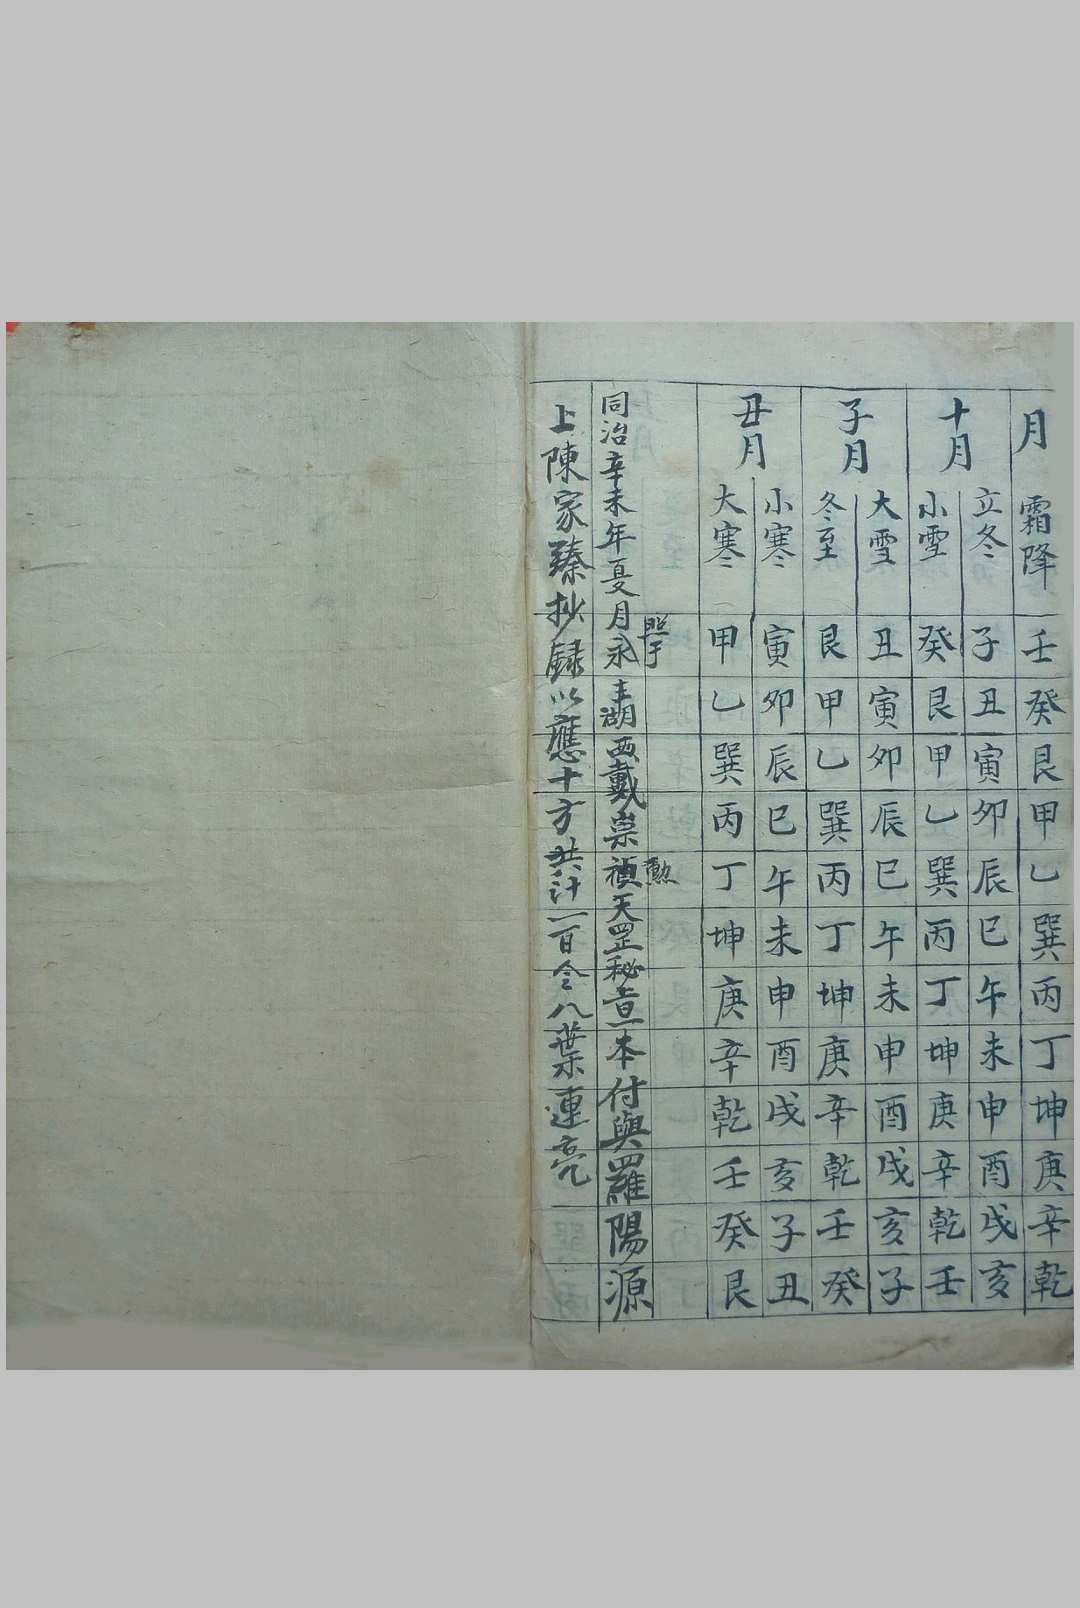 月
霜降 壬 癸 艮 甲 乙 巽 丙 丁 坤 庚 辛 乾
十月
立冬 子 丑 寅 卯 辰 巳 午 未 申 酉 戌 亥
小雪 癸 艮 甲 乙 巽 丙 丁 坤 庚 辛 乾 壬
子月
大雪 丑 寅 卯 辰 巳 午 未 申 酉 戌 亥 子
冬至 艮 甲 乙 巽 丙 丁 坤 庚 辛 乾 壬 癸
丑月
小寒 寅 卯 辰 巳 午 未 申 酉 戌 亥 子 丑
大寒 甲 乙 巽 丙 丁 坤 庚 辛 乾 壬 癸 艮
勲
同治辛未年夏月永 湖西戴崇禎天罡秘 一本付與羅陽源
上陳家臻抄録以應十方共計一百令八葉連亮